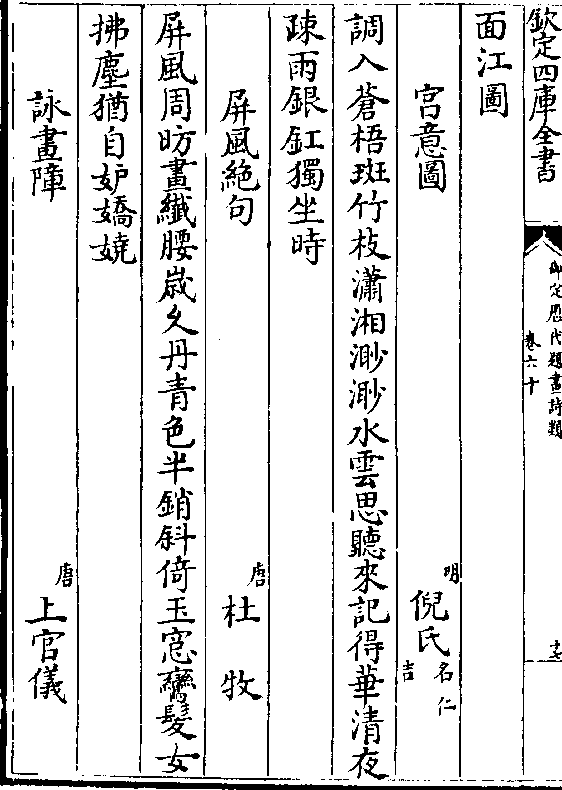 欽定四庫全書
御定歷代題畫詩類
卷六十
十七
面江圖
宫意圖
明倪氏名仁吉
調入蒼梧斑竹枝瀟湘渺渺水雲思聽來記得華清夜
疎雨銀釭獨坐時
屏風絶句
唐杜牧
屏風周昉畫纖腰嵗久丹青色半銷斜倚玉窓鸞髮女
拂塵猶自妒嬌嬈
詠畫障
唐上官儀